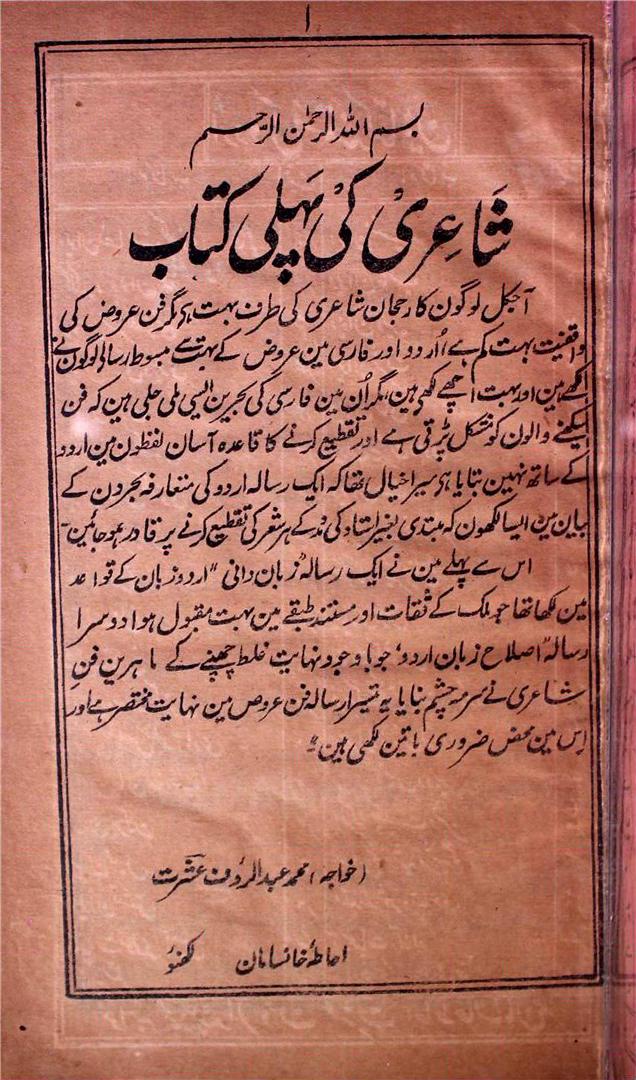 ا
بسم اللہ الرحمٰن الرحیم
شاعری کی پہلی کتاب
آجکل لوگون کا رجحان شاعری کی طرف بہت ہی مگر فن عروض کی
واقفیت بہت کم ہے، اُردو اور فارسی مین عروض کے بہت سے مبسوط رسالی لوگون نے
لکھے ہین اور بہت اچھے لکھی ہین، مگر اُن مین فارسی کی بحرین ایسی ملی جلی ہین کہ فن
سیکھنے والون کو مشکل پڑتی ہے اور تقطیع کرنے کا قاعدہ آسان لفظون مین اردو
کے ساتھ نہین بتایا ہی میرا خیال تھا کہ ایک رسالہ اردو کی متعارفہ بحردن کے
بیان مین ایسا لکھون کہ مبتدی بغیر استاد کی مدد کے ہر شعر کی تقطیع کرنے پر قادر ہو جائین۔
اس سے پہلے مین نے ایک رسالہ "زبان دانی" اردو زبان کے قواعد
مین لکھا تھا جو ملک کے ثقات اور مستند طبقے مین بہت مقبول ہوا دوسرا
رسالہ "اصلاح زبان اردو" جو باوجود نہایت غلط چھپنے کے ماہرین فنِ
شاعری نے سرمہ چشم بنایا یہ تیسرا رسالہ فن عروض مین نہایت مختصر ہے اور
اِس مین محض ضروری باتین لکھی ہین۔
(خواجہ) محمد عبدالرؤف عشرت
احاطۂ خانسامان لکھنؤ